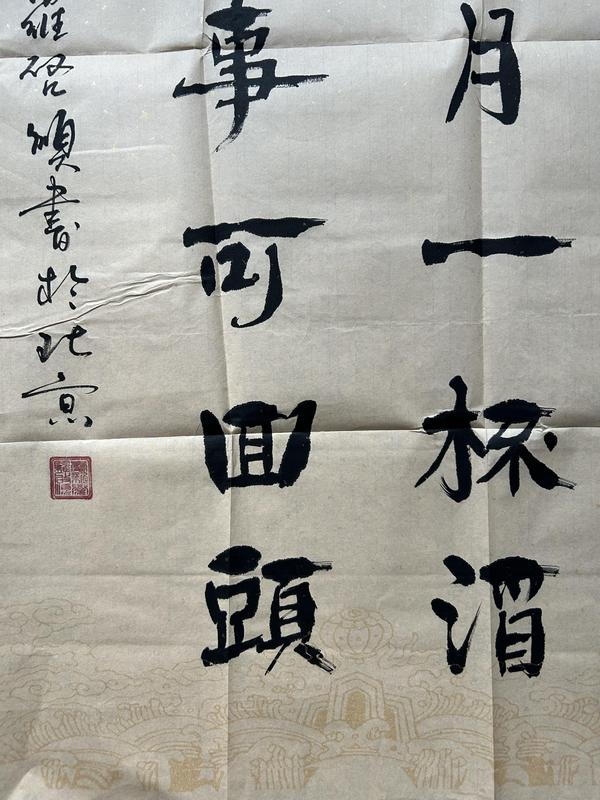 月一杯酒
事可回頭
羅启書於北京